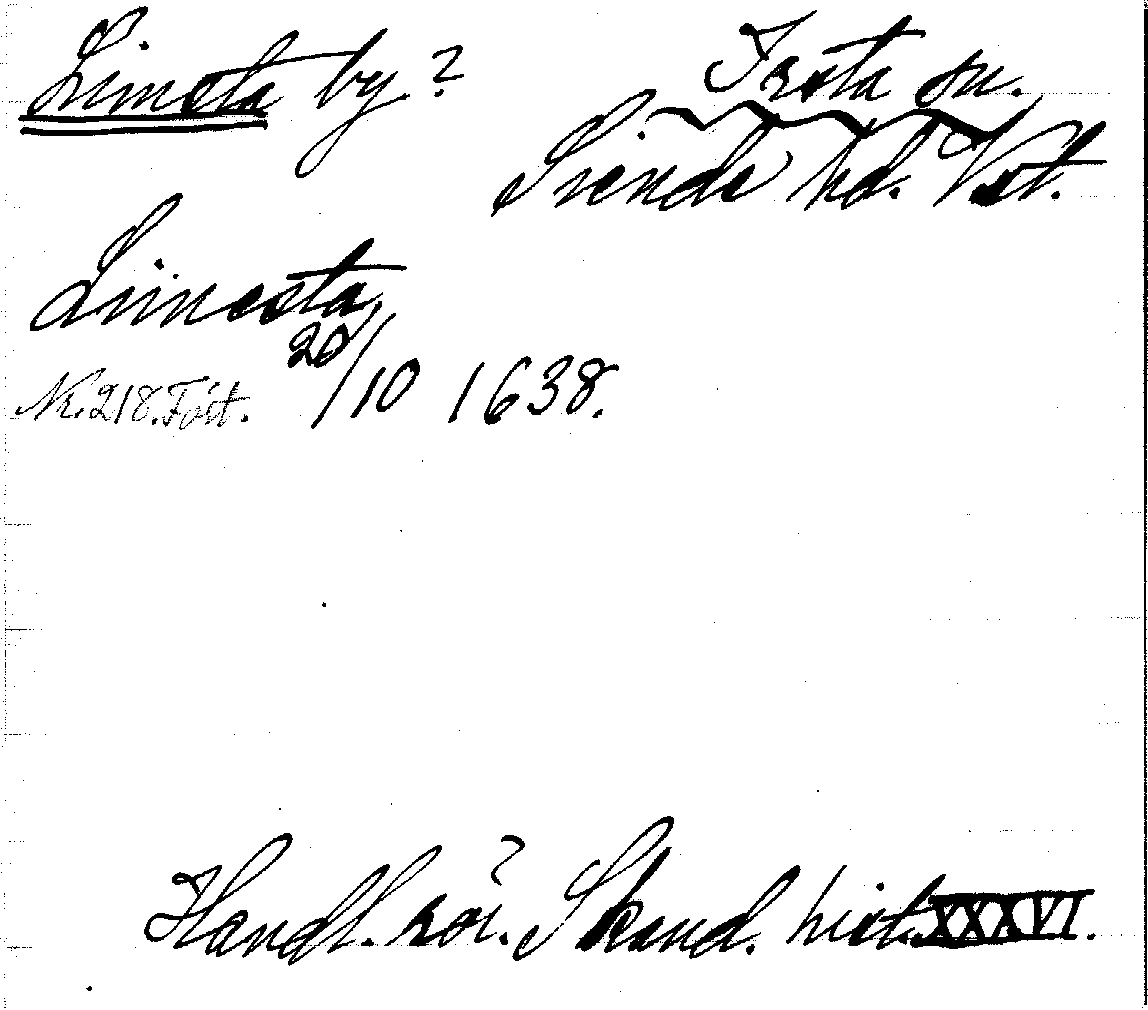 Limsta by?
Irsta sn.
Siende hd. Vst.
Limesta
20/10 1638.
Nr. 218. Fört.
Handl. rör. Skand. hist. XXXVI.